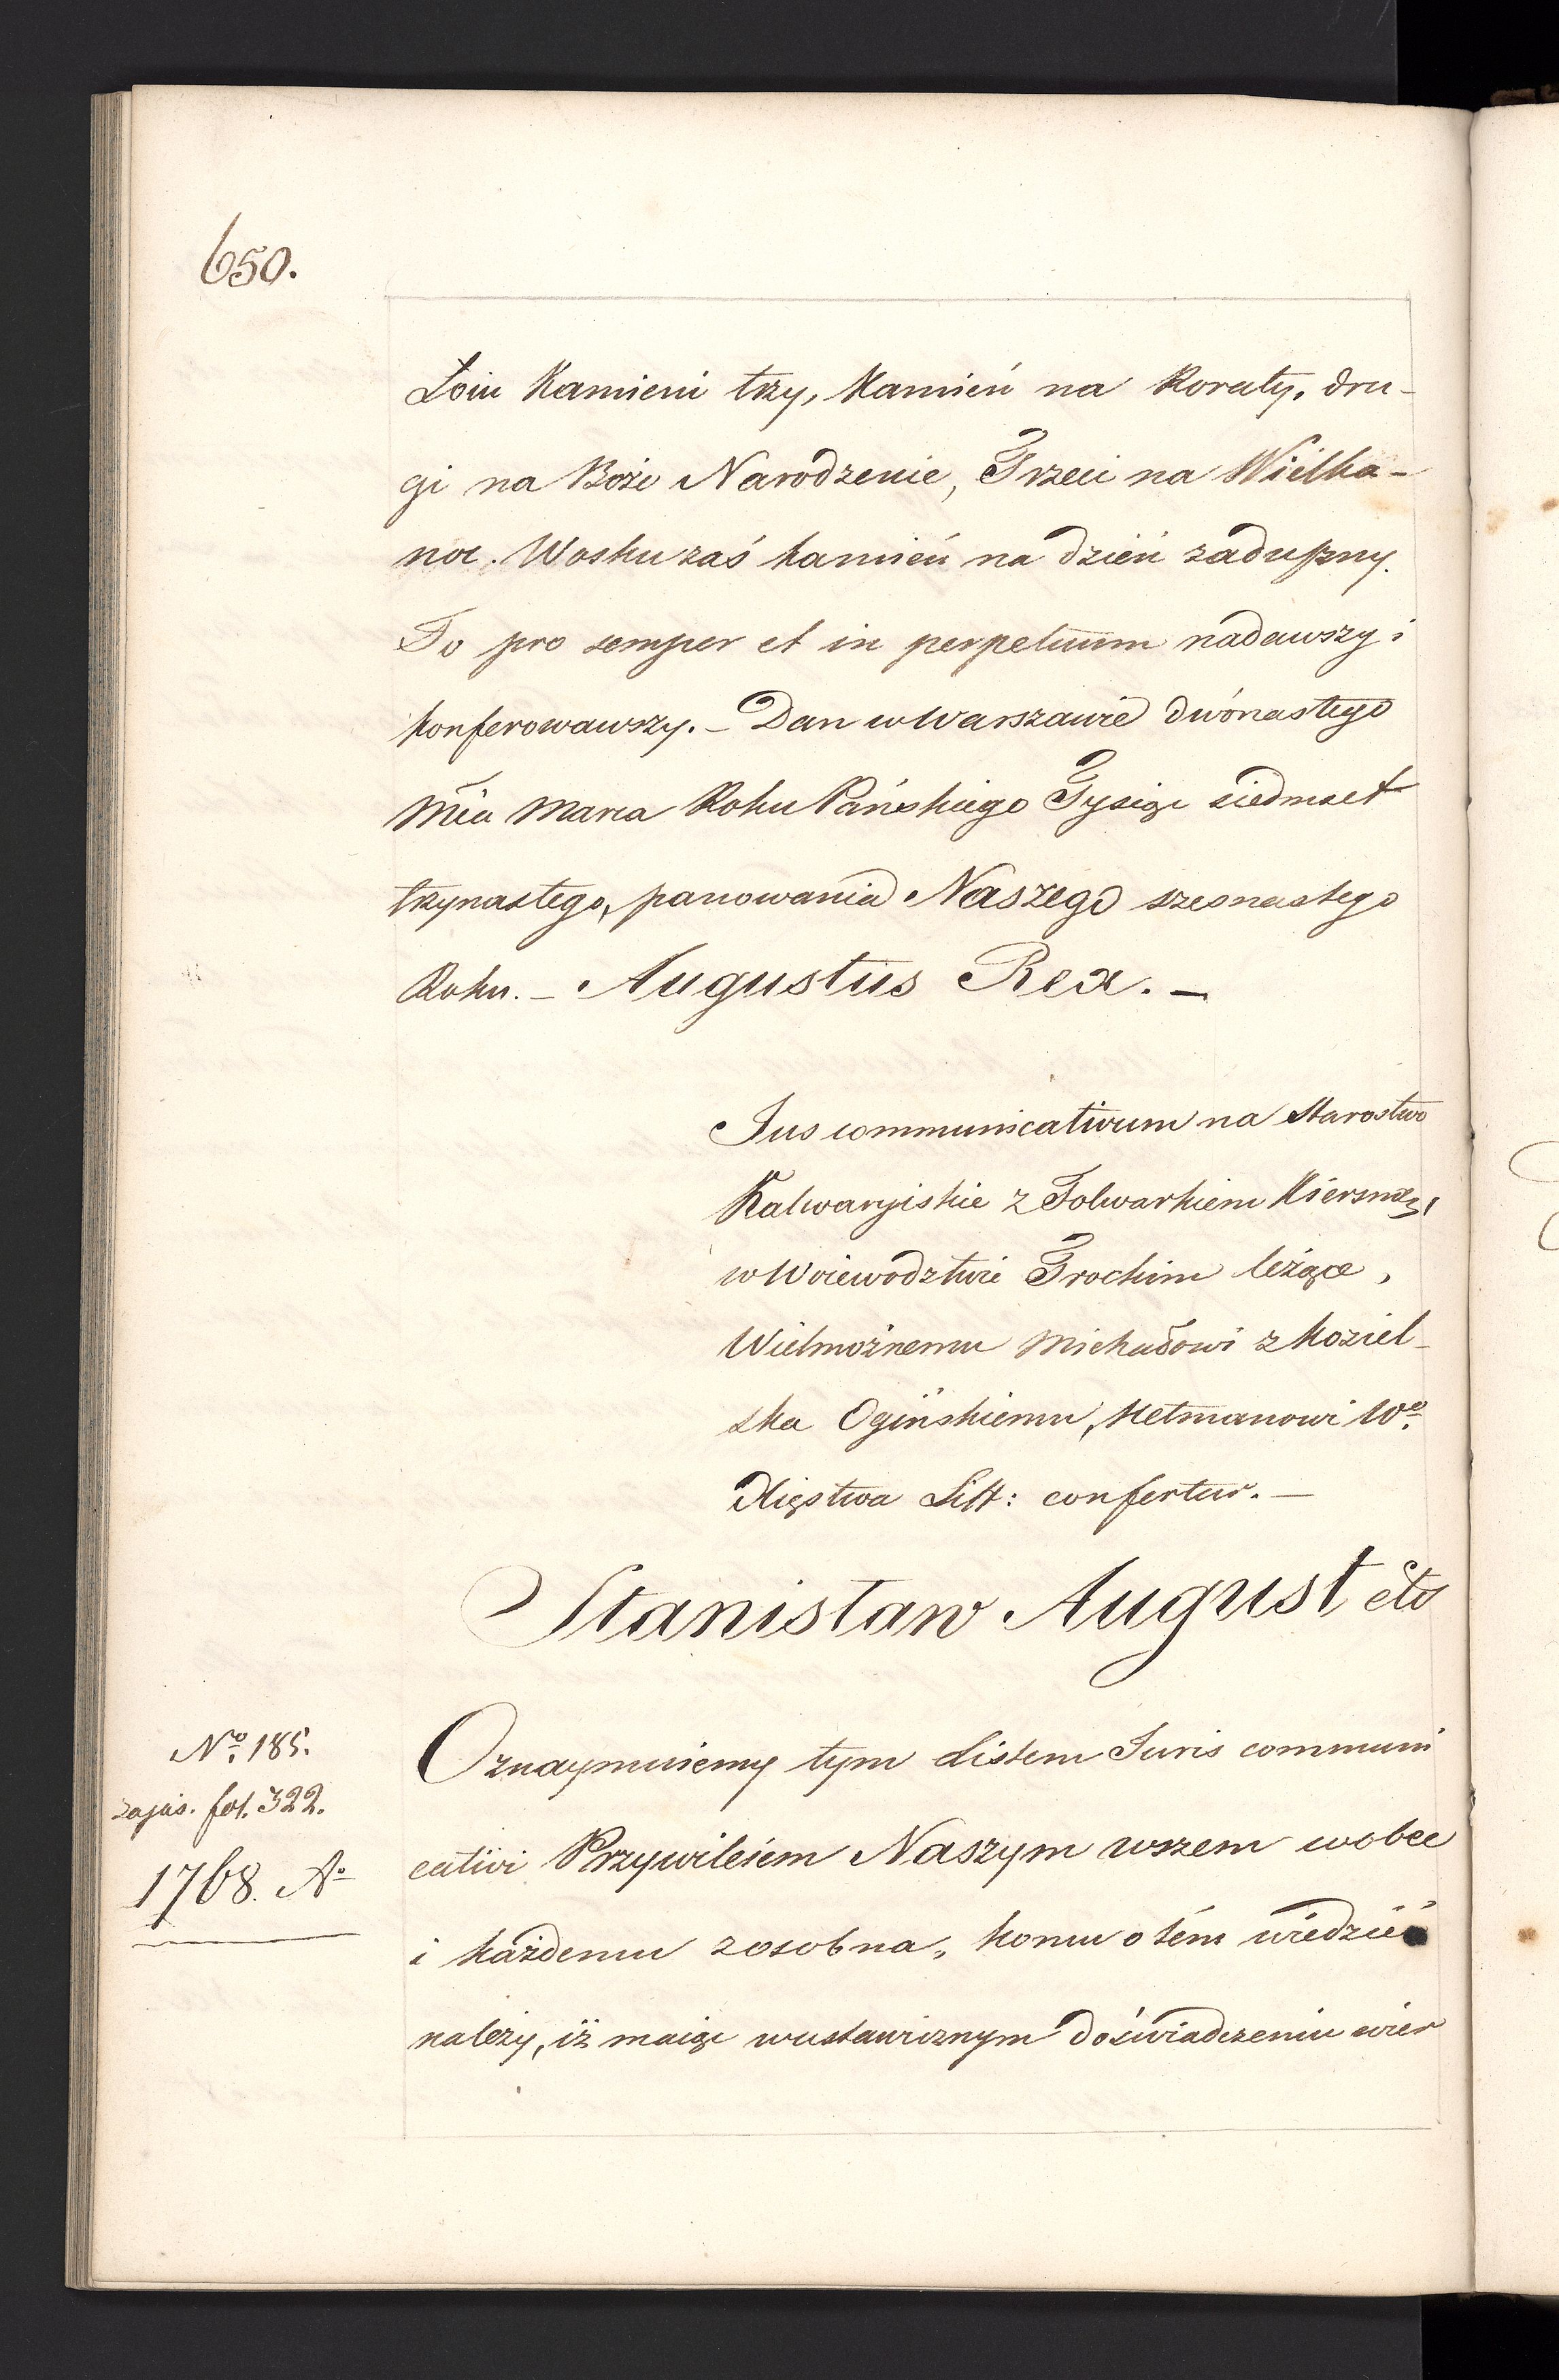 650.
Łoiu Kamieni trzy, Kamień na Roraty, dru-
gi na Boże Narodzenie, Trzeci na Wielka-
noc. Wosku zaś kamień na dzień zaduszny.
To pro semper et in perpetuum nadawszy i
konferowawszy. – Dan w Warszawie dwónastego
Mca Marca Roku Pańskiego Tysiąc siedmset
trzynastego, panowania Naszego szesnastego
Roku. – Augustus Rex. –
Jus communicativum na Starostwo
Kalwaryiskie z Folwarkiem
w Woiewodztwie Trockim leżące,
Wielmożnemu Michałowi z Koziel-
ska Ogińskiemu, Hetmanowi Wo.
Xięstwa Litt: confertur. –
Stanisław August etc
No. 185.
zapis. fol. 322.
1768. Ao
Oznaymuiemy tym Listem Juris communi
cativi Przywileiem Naszym wszem wobec
i każdemu zosobna, komu o tém wiedzieć
należy, iż maiąc wustawicznym doświadczeniu wier